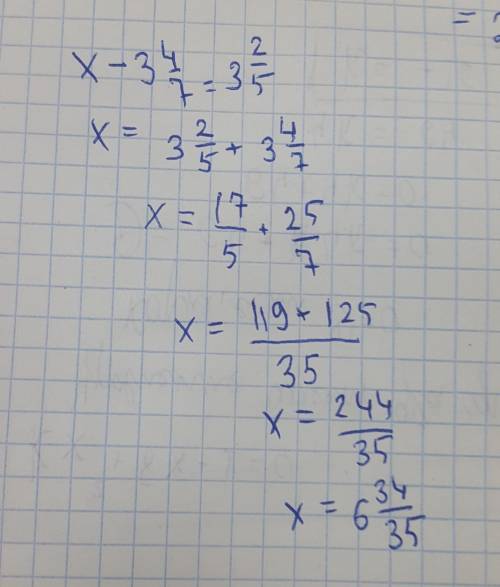 x - 3 4/7 = 3 2/5
x = 3 2/5 + 3 4/7
x = 17/5 + 25/7
x = (119 + 125)/35
x = 244/35
x = 6 34/35